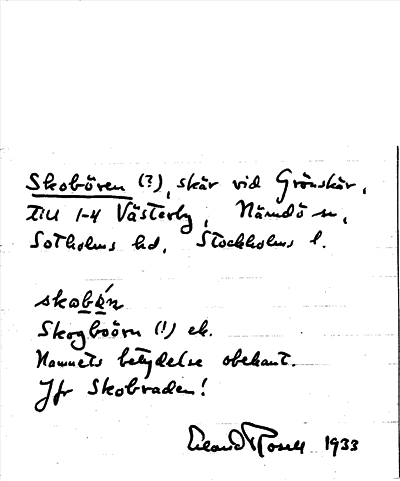 Skobören (?), skär vid Grönskär,
till 1-4 Västerby, Nämdö sn,
Sotholms hd, Stockholms l.
skobén
Skogboörn (!) ek.
Namnets betydelse obekant.
Jfr Skobraden!
Erland Rosell 1933